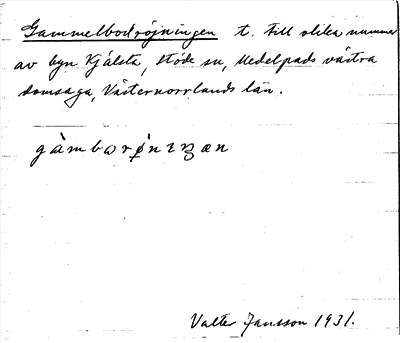 Gammelbodröjningen t. till olika nummer
av byn Kjälsta, Stöde sn, Medelpads västra
domsaga, Västernorrlands län.
gàmbωrǿnɪŋæn
Valter Jansson 1931.